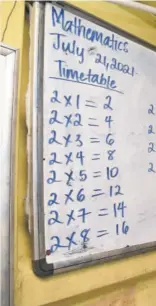 Mathematics
July 21, 2021
Timetable
2 × 1 = 2
2 × 2 = 4
2 × 3 = 6
2 × 4 = 8
2 × 5 = 10
2 × 6 = 12
2 × 7 = 14
2 × 8 = 16
2
2
2
2